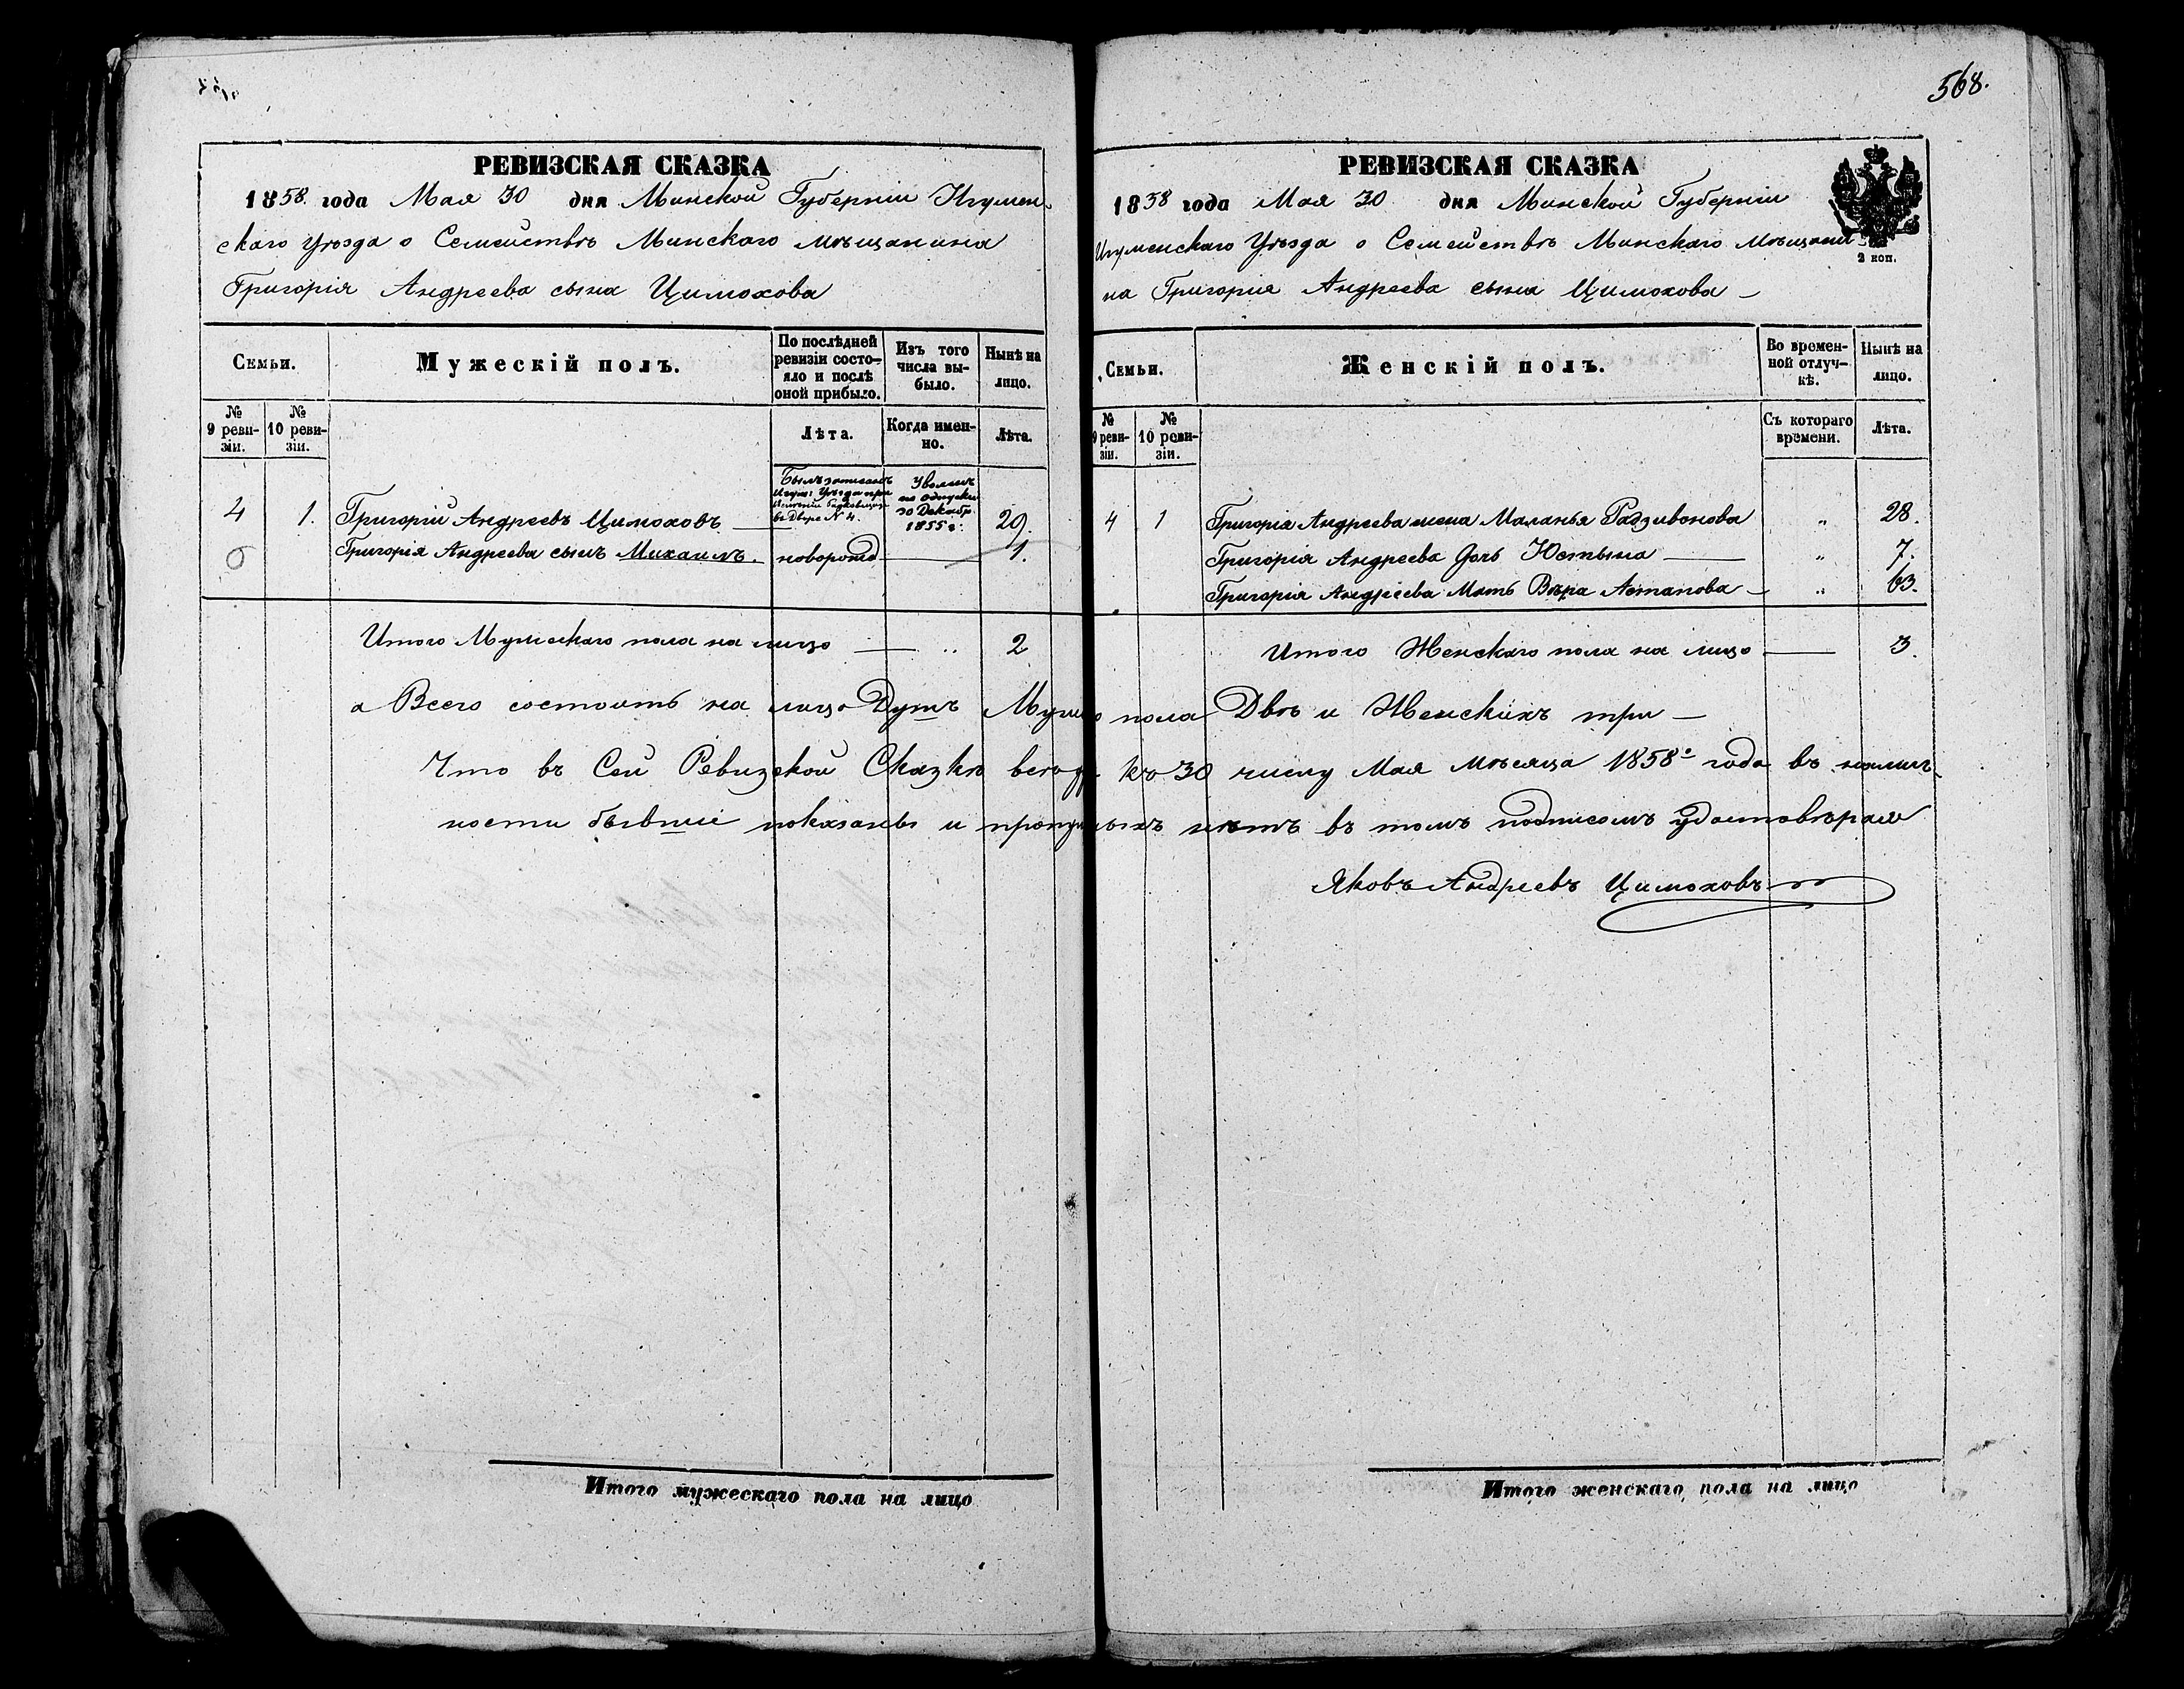 568.
РЕВИЗСКАЯ СКАЗКА
1858 года Мая 30 дня Минской Губернiи Игумен-
скаго Уѣзда о Семействѣ Минскаго мѣщанина
Григорiя Андреева сына Цимохова
Семьи.
Мужескiй полъ.
По послѣдней ревизiи состо-
яло и послѣ
оной прибыло.
Изъ того
числа вы-
было.
Нынѣ на
лицо.
№
9 реви-
зiи.
№
10 реви-
зiи.
Лѣта.
Когда имен-
но.
Лѣта.
4 1. Григорiй Андреевъ Цимоховъ
Былъ записанъ
Игум: Уѣзда при
въ Дворѣ N 4.
30 Декабр.
1855 г.
29.
Григорiя Андреева сынъ Михаилъ. новорожд 1.
Итого Мужескаго пола на лицо 2
РЕВИЗСКАЯ СКАЗКА
1858 года Мая 30 дня Минской Губернiи
Игуменскаго Уѣзда о Семействѣ Минскаго мѣщани-
на Григорiя Андреева сына Цимохова
2 коп.
Семьи.
Женскiй полъ.
Во времен-
ной отлуч-
кѣ.
Нынѣ на
лицо.
№
9 реви-
зiи.
№
10 реви-
зiи.
Съ котораго
времени.
Лѣта.
4 1 Григорiя Андреева жена Маланья Радзивонова „ 28.
Григорiя Андреева дочь Юстына „ 7.
Григорiя Андреева Мать Вѣра Астапова „ 63.
Итого Женскаго пола на лицо 3.
а Всего состоитъ на лицо Душъ Мужс пола Двѣ и Женскихъ три
Что въ Сей Ревизской Сказкѣ всѣ къ 30 числу Мая мѣсяца 1858 года въ налич-
ности бывшiе показаны и нѣтъ въ томъ подписомъ удостовѣряю
Яковъ Андреевъ Цимоховъ
Итого мужескаго пола на лицо
Итого женскаго пола на лицо